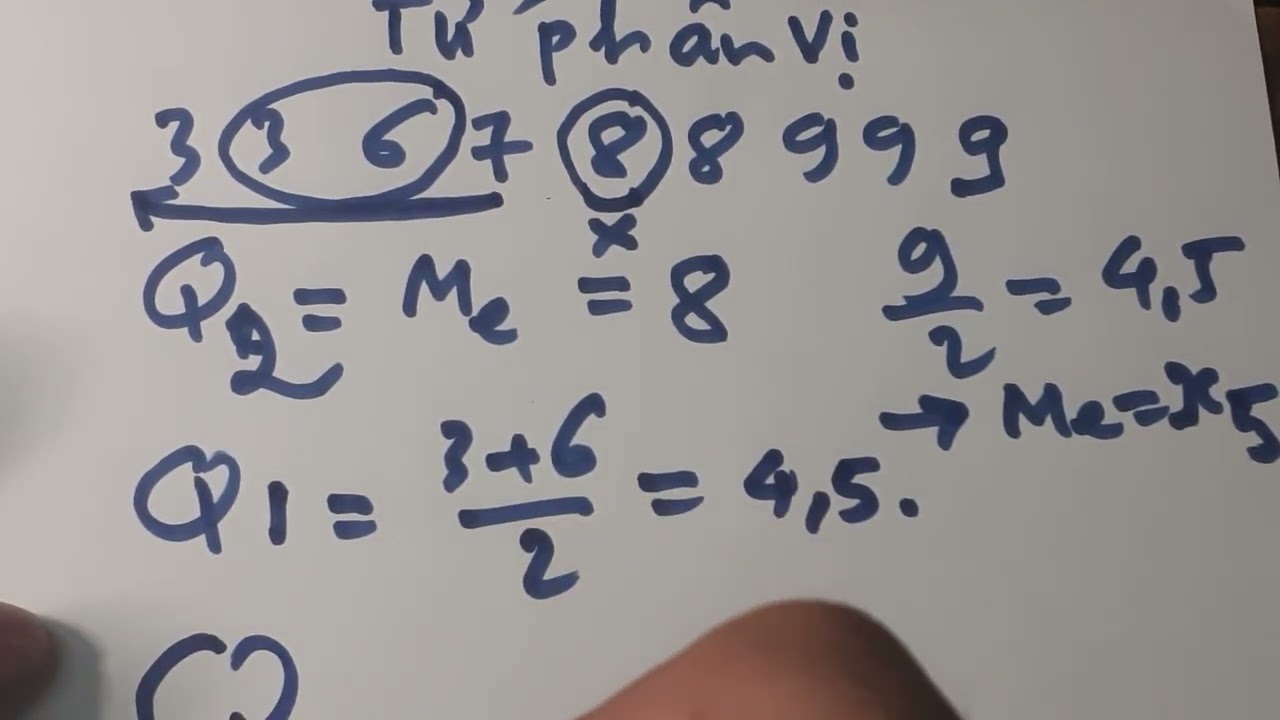 Tứ phân vị
3 3 6 7 8 8 9 9 9
x
Q2 = Me = 8
9/2 = 4,5
→ Me = x5
Q1 = (3+6)/2 = 4,5.
Q